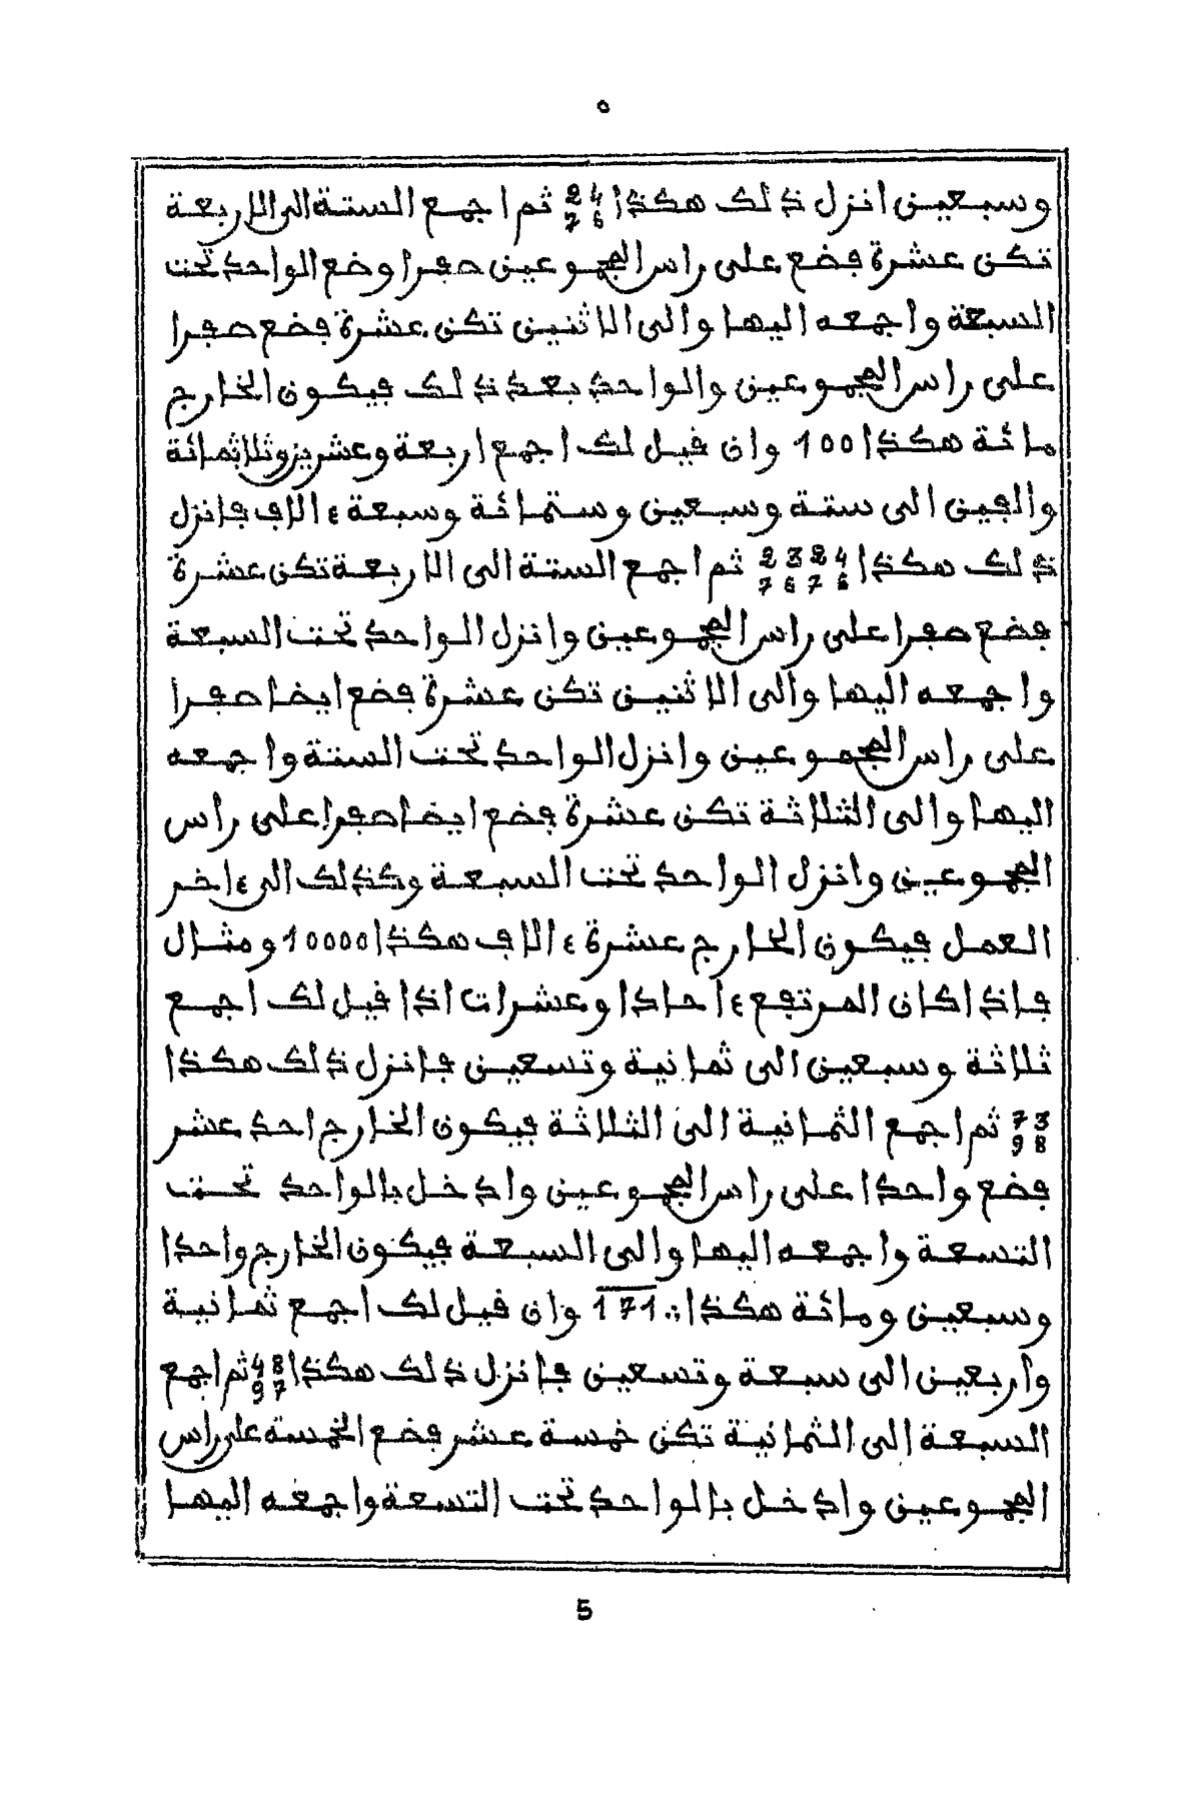 ٥
وسبعين انزل ذلك هكذا 24 76 ثم اجمع الستة الى الاربعة
تكن عشرة فضع على راس المجموعين صفرا وضع الواحد تحت
السبعة واجمعه اليها والى الاثنين تكن عشرة فضع صفرا
على راس المجموعين والواحد بعد ذلك فيكون الخارج
مائة هكذا 100 وان قيل لك اجمع اربعة وعشرين وثلاثمائة
والفين الى ستة وسبعين وستمائة وسبعة ءالاف فانزل
ذلك هكذا 2324 7676 ثم اجمع الستة الى الاربعة تكن عشرة
فضع صفرا على راس المجموعين وانزل الواحد تحت السبعة
واجمعه اليها والى الاثنين تكن عشرة فضع ايضا صفرا
على راس المجموعين وانزل الواحد تحت الستة واجمعه
اليها والى الثلاثة تكن عشرة فضع ايضا صفرا على راس
المجموعين وانزل الواحد تحت السبعة وكذلك الى ءاخر
العمل فيكون الخارج عشرة ءالاف هكذا 10000 ومثال
فاذا كان المرتفع ءاحادا وعشرات اذا قيل لك اجمع
ثلاثة وسبعين الى ثمانية وتسعين فانزل ذلك هكذا
73 98 ثم اجمع الثمانية الى الثلاثة فيكون الخارج احد عشر
فضع واحدا على راس المجموعين وادخل بالواحد تحت
التسعة واجمعه اليها والى السبعة فيكون الخارج واحدا
وسبعين ومائة هكذا 171 وان قيل لك اجمع ثمانية
واربعين الى سبعة وتسعين فانزل ذلك هكذا 48 97 ثم اجمع
السبعة الى الثمانية تكن خمسة عشر فضع الخمسة على راس
المجموعين وادخل بالواحد تحت التسعة واجمعه اليها
5